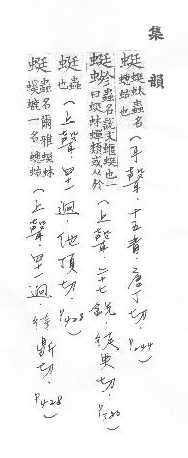 集韻
蜓 蜓蚞蟲名蟪蛄也（平聲．十五青．唐丁切．P.244）
蜓 蟲名說文蝘蜓也一曰蜓蚞（上聲．二十七銑．徒典切．P.380）
蜓 蟲名也（上聲．四十一迥．他頂切．P.428）
蜓 蟲名爾雅蜓蚞螇螰一名蟪蛄（上聲．四十一迥．待鼎切．P.428）